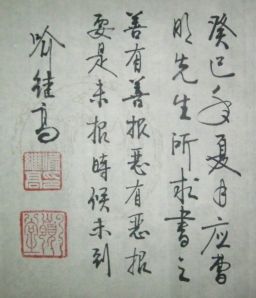 癸巳年夏月应曹
明先生所求書之
善有善报恶有恶报
要是未报時候未到
喻继高